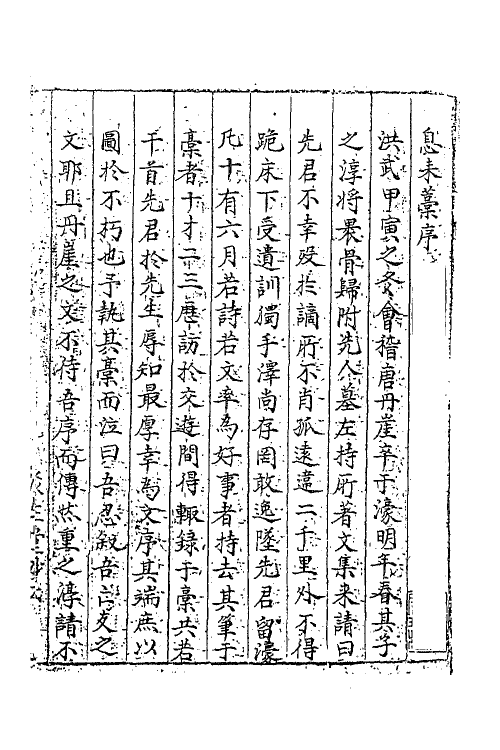 息耒藁序
洪武甲寅之冬會稽唐丹崖卒于濠明年春其子
之淳將裹骨歸附先人墓左持所著文集来請曰
先君不幸殁於謫所不肖孤遠違二千里外不得
跪床下受遺訓獨手澤尚存罔敢逸墜先君留濠
凡十有六月若詩若文率為好事者持去其筆于
藁者十才二三歷訪於交遊間得輙錄于藁共若
干首先君於先生辱知最厚幸為文序其端庶以
圖於不朽也予執其藁而泣曰吾忍敘吾友之
文耶且丹崖之文不待吾序而傳然重之淳請不